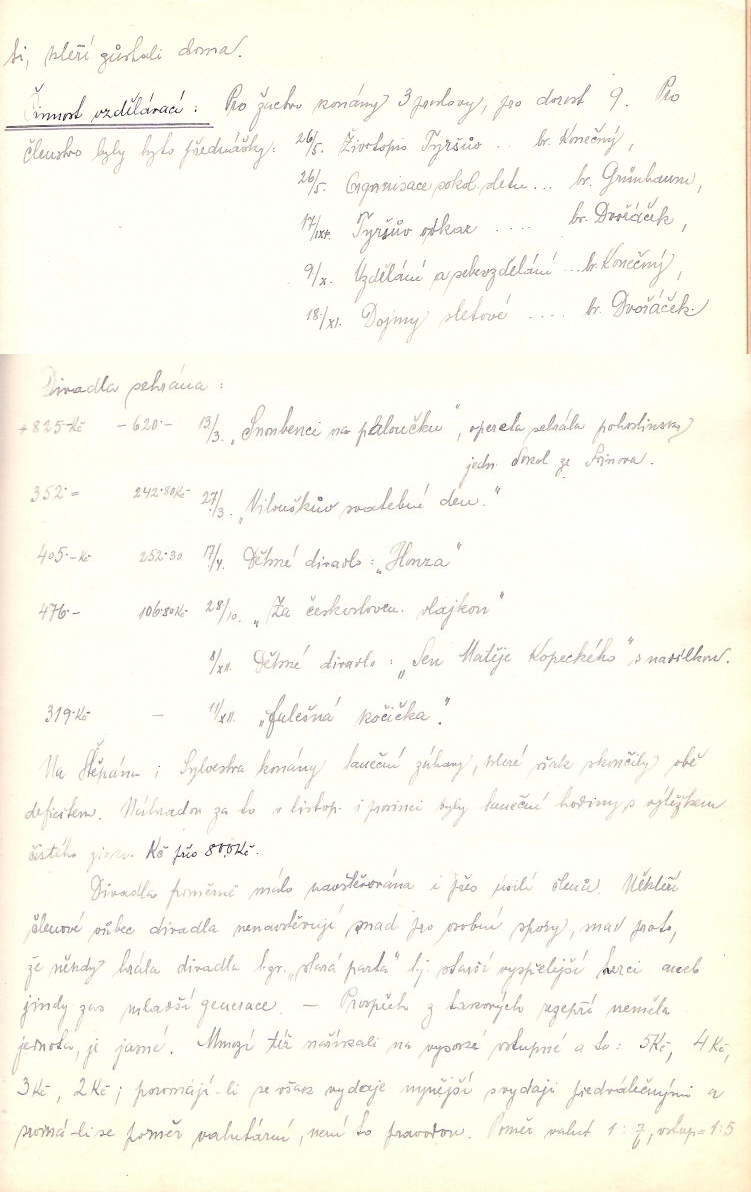 ti, kteří zůstali doma.
Činnost vzdělávací: Pro žactvo konány 3 proslovy, pro dorost 9. Pro
členstvo byly tyto přednášky: 26/5. Životopis Tyršův .. br. Konečný,
26/5. Organisace sokol. sletu ... br. Grünbaum,
17/IX. Tyršův odkaz .... br. Dvořáček,
9/X. Vzdělání a sebevzdělání ... br. Konečný,
18/XI. Dojmy sletové .... br. Dvořáček.
Divadla sehrána:
+825·-Kč -620·- 13/3. „Snoubenci na paloučku", opereta sehrála pohostinsky
jedn. Sokol ze
352·= 242·80Kč 27/3. „Vilouškův svatební den."
405·-Kč 252·30 17/4. Dětské divadlo: „Honza"
476·- 106·80Kč 28/10. „Za českosloven. vlajkou"
8/XII. Dětské divadlo: „Sen Matěje Kopeckého" s nadílkou.
319·Kč - 11/XII. „Falešná kočička."
Na Štěpána i Sylvestra konány taneční zábavy, které však skončily obě
deficitem. Náhradou za to v listop. i prosinci byly taneční hodiny s výtěžkem
čistého zisku Kč přes 800Kč.
Divadla poměrně málo navštěvována i přes úsilí členů. Někteří
členové vůbec divadla nenavštěvují snad pro osobní spory, snad proto,
že někdy hrála divadla tzv. „stará parta" tj. starší vyspělejší herci aneb
jindy zas mladší generace. — Prospěch z takových rozepří neměla
jednota, je jasné. Mnozí též naříkali na vysoké vstupné a to: 5Kč, 4Kč,
3Kč, 2Kč; porovnají-li se však vydaje nynější s vydaji předválečnými a
srovná-li se poměr valutární, není to pravdou. Poměr valut 1:7, vstup=1:5